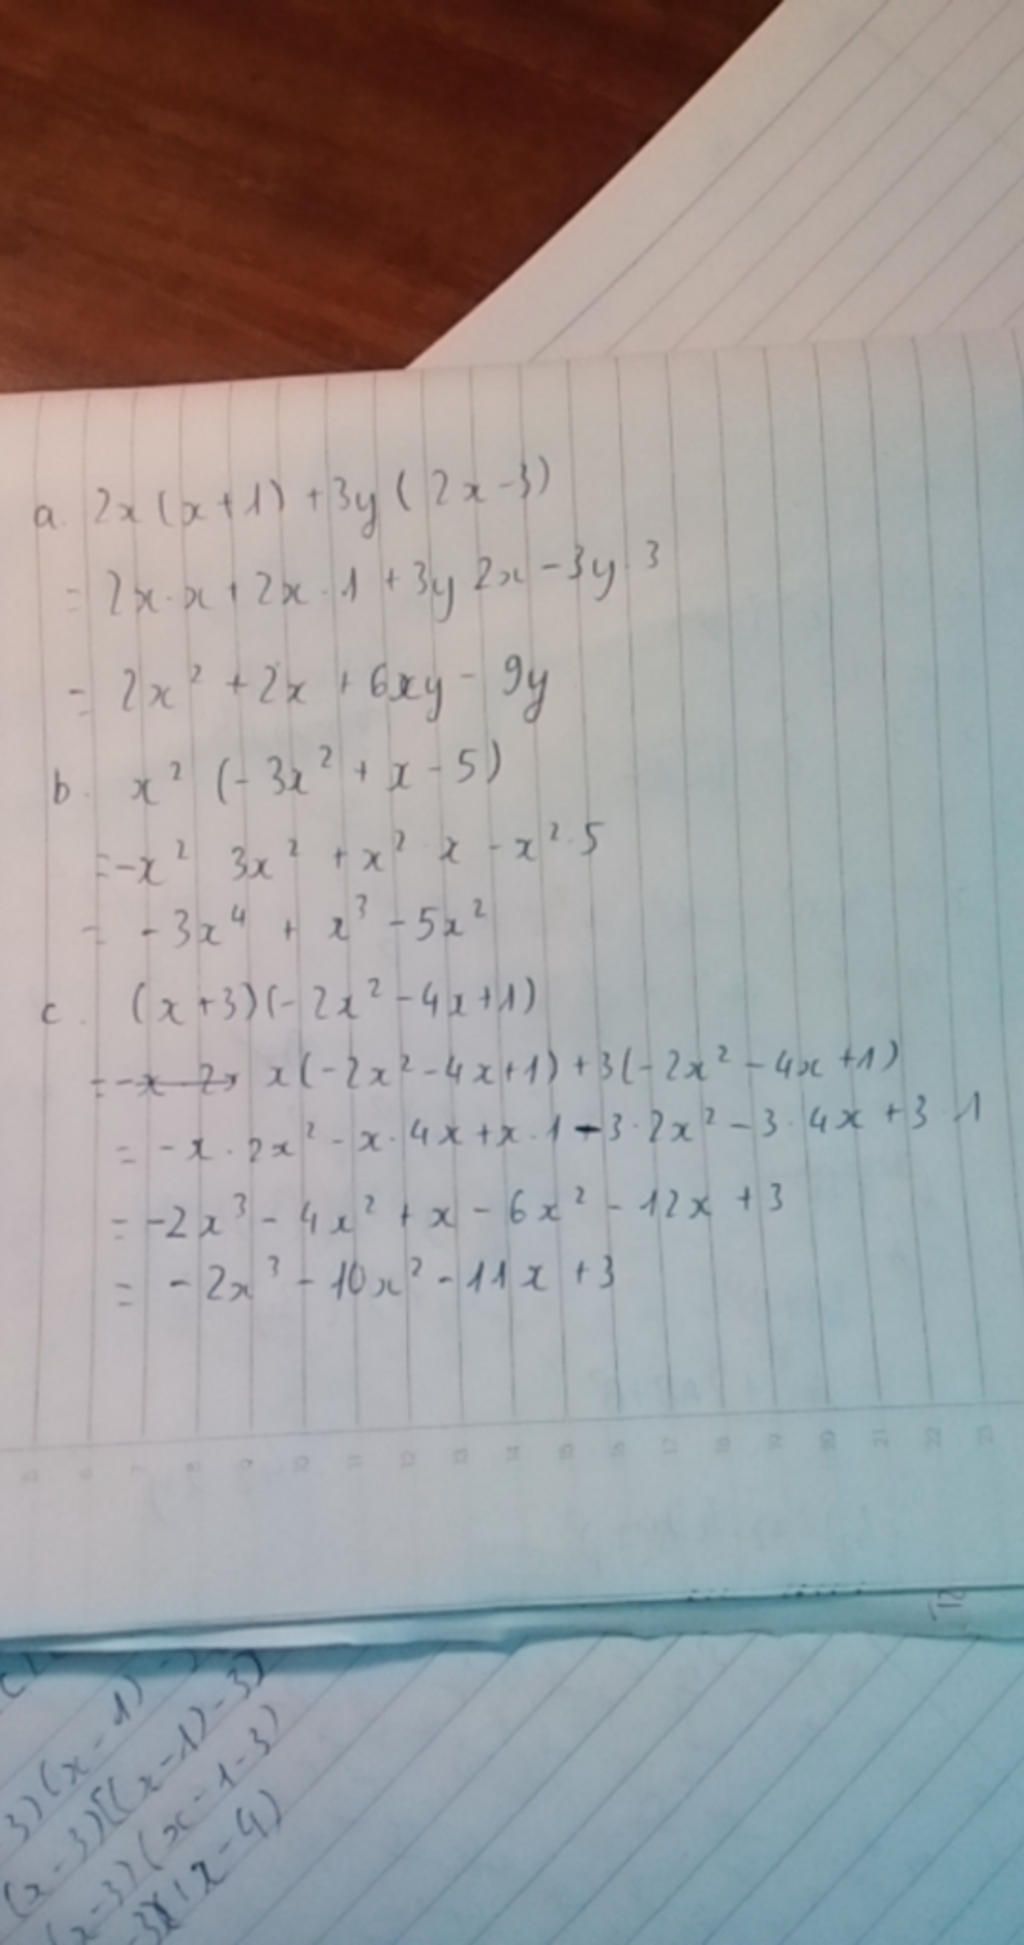 a. 2x(x+1)+3y(2x-3)
= 2x·x+2x·1+3y 2x-3y·3
= 2x²+2x+6xy-9y
b. x²(-3x²+x-5)
=-x² 3x²+x² x-x²·5
= -3x⁴+x³-5x²
c. (x+3)(-2x²-4x+1)
= x(-2x²-4x+1)+3(-2x²-4x+1)
= -x·2x²-x·4x+x·1-3·2x²-3·4x+3·1
= -2x³-4x²+x-6x²-12x+3
= -2x³-10x²-11x+3
5 6 7 8 9 10 11 12 13 14 15 16 17 18 19 20 21 22 23
3)(x-1)
(x-3)[(x-1)-3)
(x-3)(x-1-3)
-3)(x-4)